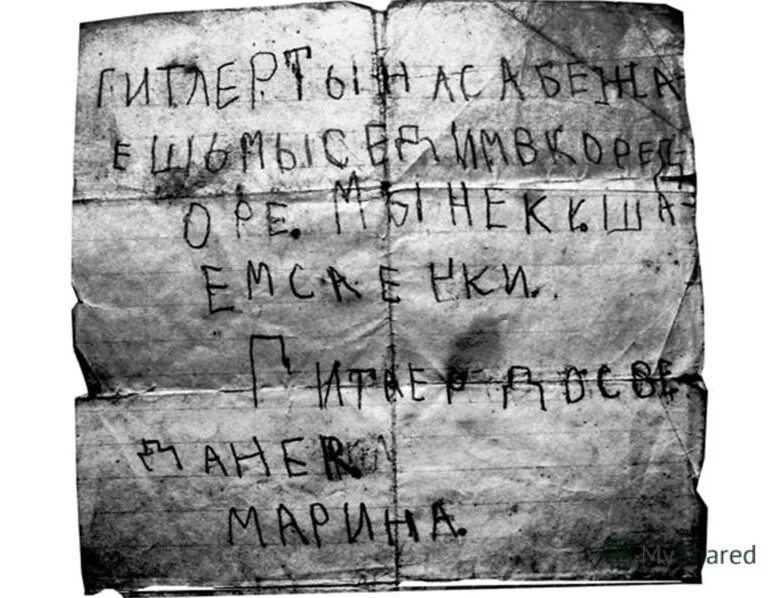 ГИТЛЕР ТЫ НАС АБЕЖА
ЕШЬ МЫ СЕДИМ В КОРЕД
ОРЕ. МЫ НЕ К К.ША
ЕМ САЕ НКИ.
ГИТЛЕР ДОСВЕ
ДАНЕЯ
МАРИНА.